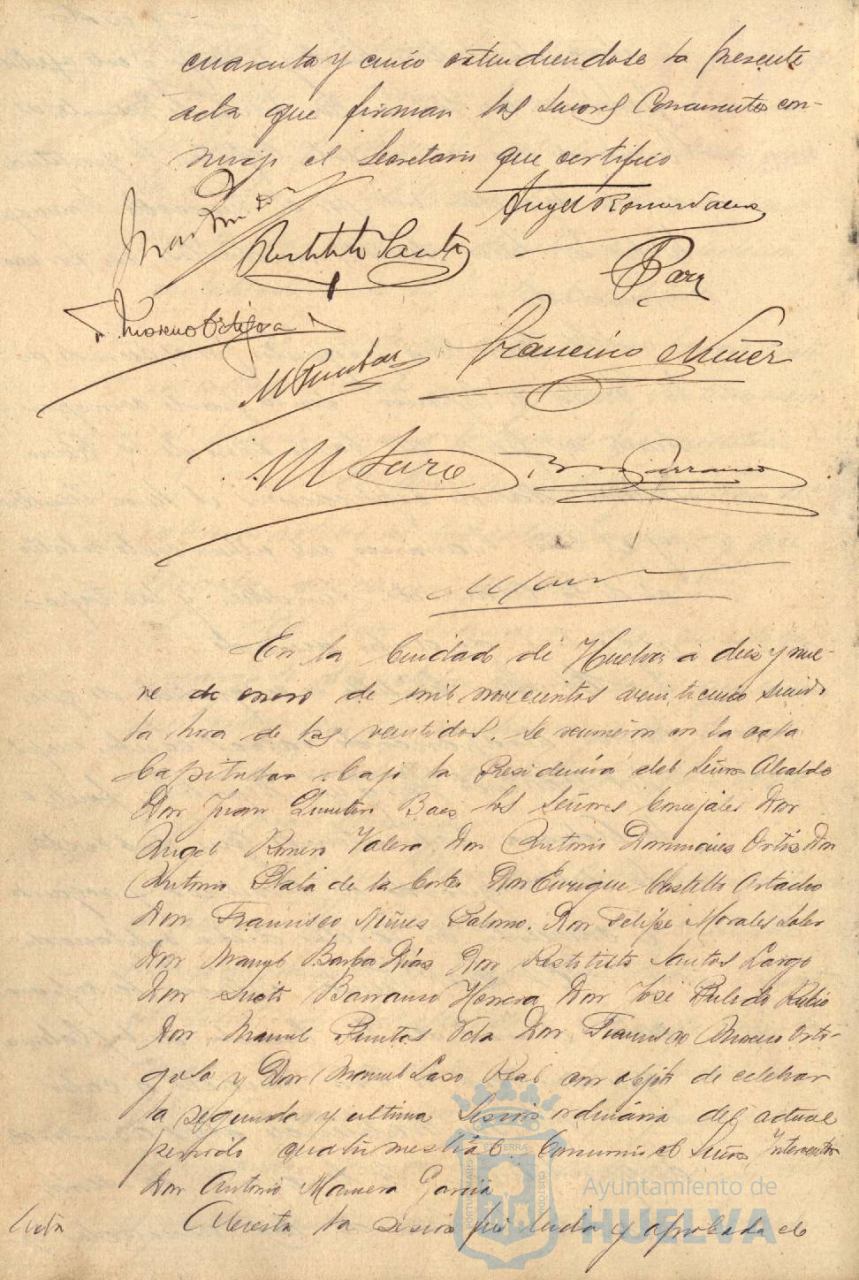 cuarenta y cinco estendiendose la presente
acta que firman los Señores Concurrentes con-
migo el Secretario que certifico
Restituto Santos
Moreno Ortigosa
M Puntas
Francisco Núñez
M Laso
B Barranco
En la Ciudad de Huelva a diez y nue-
ve de enero de mil novecientos veinticinco siendo
la hora de las veintidos. Se reunieron en la sala
Capitular bajo la Presidencia del Señor Alcalde
Don Juan Quintero Baez los Señores Concejales Don
Angel Romero Valera Don Antonio Dominguez Ortiz Don
Antonio Plata de la Corte Don Enrique Castillo
Don Francisco Núñez Palomo. Don Felipe Morales
Don Manuel Barba Díaz Don Restituto Santos Largo
Don Barranco Herrera Don José Pulido Rubio
Don Manuel Puntas Don Francisco Moreno Orti-
gosa y Don Manuel Laso Real con objeto de celebrar
la segunda y ultima Sesión ordinaria del actual
periodo cuatrimestral. Concurrió el Señor Interventor
Don Antonio Garcia
Acta Abierta la sesión fué leida y aprobada el
Ayuntamiento de
HUELVA